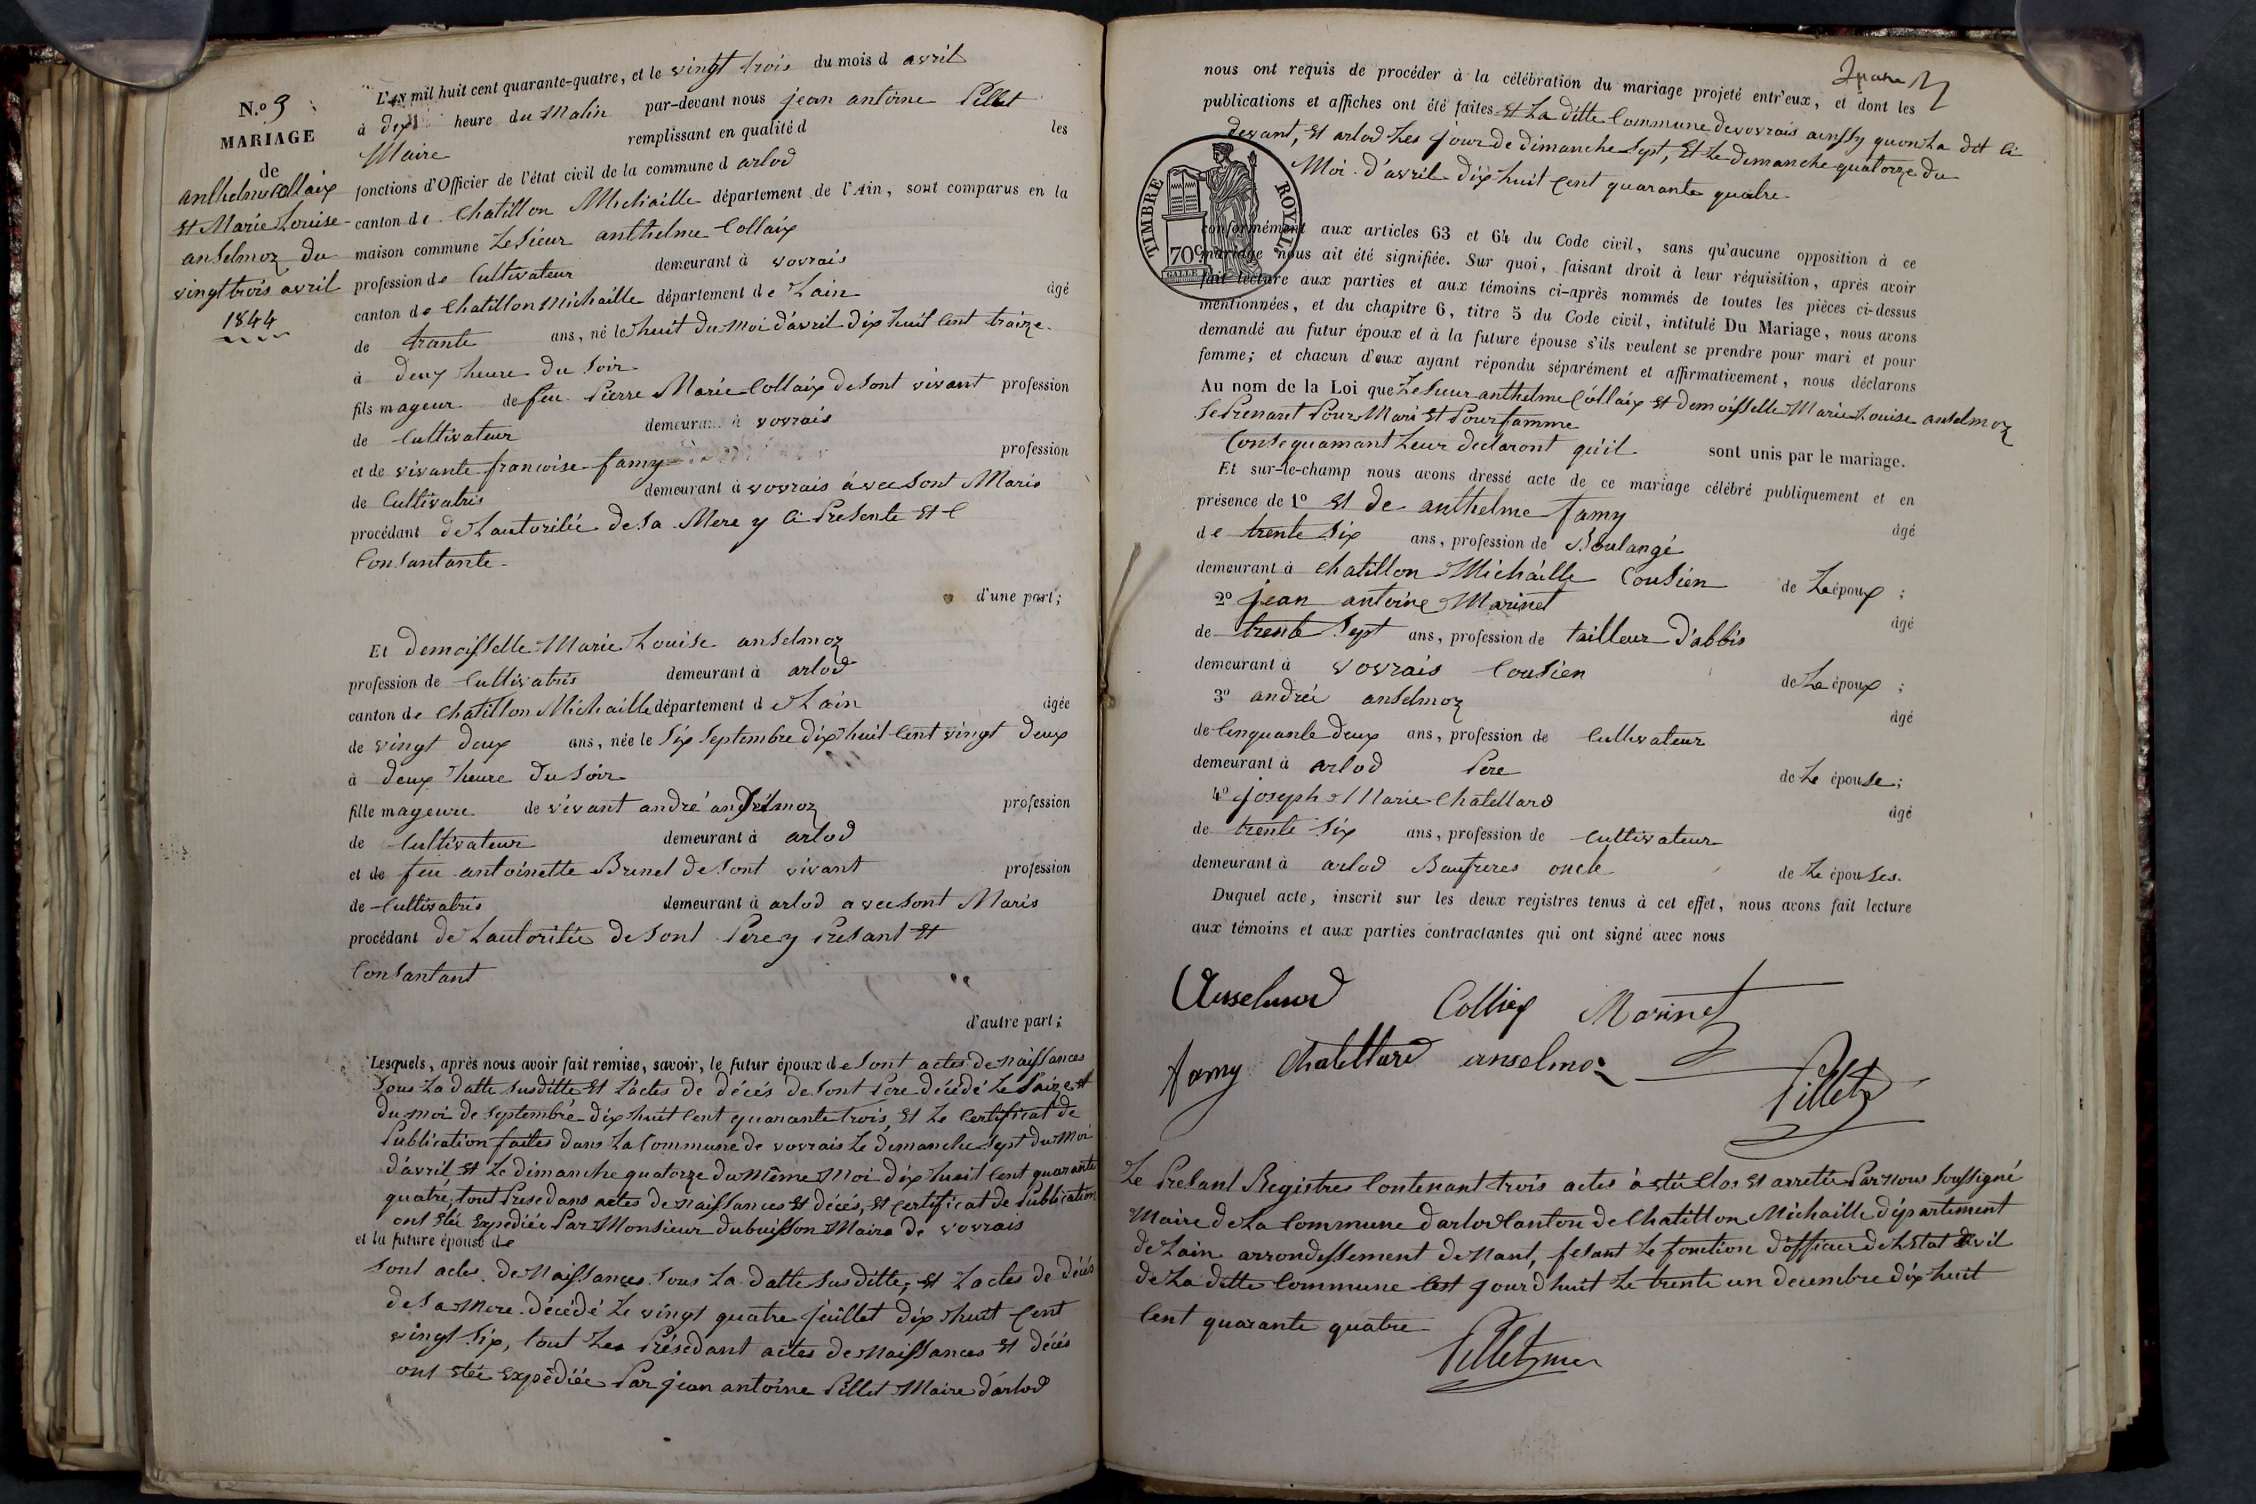 N.o 3
MARIAGE
de
anthelme Collaix
et Marie Louise
anselmoz du
vingt trois avril
1844
L'an mil huit cent quarante-quatre, et le vingt trois du mois d avril
à dix heure du Matin par-devant nous jean antoine Pillet
Maire remplissant en qualité d les
fonctions d'Officier de l'état civil de la commune d arlod
canton de Chatillon Michaille département de l'Ain, sont comparus en la
maison commune Le Sieur anthelme Collaix
profession de Cultivateur demeurant à vovrais
canton de Chatillon Michaille département de Lain âgé
de trante ans, né le huit du Moi d'avril dix huit Cent traize
à deux heure du Soir
fils mageur de feu Pierre Marie Collaix de Sont vivant profession
de Cultivateur demeurant à vovrais
et de vivante francoise famy profession
de Cultivatris demeurant à vovrais avec Sont Maris
procédant de Lautoritée de Sa Mere y Ci Presente et C
Consantante
d'une part;
Et demoisselle Marie Louise anselmoz
profession de Cultivatris demeurant à arlod
canton de Chatillon Michaille département d Lain âgée
de vingt deux ans, née le Six Septembre dix huit Cent vingt deux
à deux heure du Soir
fille mageure de vivant andré anselmoz profession
de Cultivateur demeurant à arlod
et de feu antoinette Brunel de Sont vivant profession
de Cultivatris demeurant à arlod avec Sont Maris
procédant de Lautoritée de Sont Pere y Presant et
Consantant
d'autre part;
Lesquels, après nous avoir fait remise, savoir, le futur époux de Sont actes de Naissances
Sous La datte Susditte et L'actes de décés de Sont Pere décédé Le Saize
du moi de Septembre dix huit Cent quarante trois, et Le Certificat de
Publication faites dans La Commune de vovrais Le dimanche Sept du Moi
d'avril et Le dimanche quatorze du Même Moi dix huit Cent quarante
quatre, tout Presedans actes de Naissances et décés, et Certificat de Publication
ont étée Expediée Par Monsieur dubuisson Maire de vovrais
et la future épouse de
Sont actes de Naissances Sous La datte Susditte, et Lactes de décés
de Sa Mere décédé Le vingt quatre juillet dix huit Cent
vingt Six, tout Les Présedant actes de Naissances et décés
ont étée Expédiée Par jean antoine Pillet Maire d'arlod
nous ont requis de procéder à la célébration du mariage projeté entr'eux, et dont les
publications et affiches ont été faites et La ditte Commune de vovrais ainssy quon La dit Ci
devant, et arlod Les jour de dimanche Sept, et Le dimanche quatorze du
Moi d'avril dix huit Cent quarante quatre
TIMBRE ROYAL
70c
conformément aux articles 63 et 64 du Code civil, sans qu'aucune opposition à ce
mariage nous ait été signifiée. Sur quoi, faisant droit à leur réquisition, après avoir
fait lecture aux parties et aux témoins ci-après nommés de toutes les pièces ci-dessus
mentionnées, et du chapitre 6, titre 5 du Code civil, intitulé Du Mariage, nous avons
demandé au futur époux et à la future épouse s'ils veulent se prendre pour mari et pour
femme; et chacun d'eux ayant répondu séparément et affirmativement, nous déclarons
Au nom de la Loi que Le Sieur anthelme Collaix et demoisselle Marie Louise anselmoz
Se Prenant Pour Mari et Pour famme
Consequamant Leur declaront qu'il sont unis par le mariage.
Et sur-le-champ nous avons dressé acte de ce mariage célébré publiquement et en
présence de 1o et de anthelme famy âgé
de trente Six ans, profession de Boulangé
demeurant à Chatillon Michaille Cousien de Le époux ;
2o jean antoine Marinet âgé
de trente Sept ans, profession de tailleur d'abbis
demeurant à vovrais Cousien de Le époux ;
3o andrée anselmoz âgé
de Cinquante deux ans, profession de Cultivateur
demeurant à arlod Pere de Le épouse;
4o joseph Marie Chatellard âgé
de trente Six ans, profession de Cultivateur
demeurant à arlod Baufreres oncle de Le épouses.
Duquel acte, inscrit sur les deux registres tenus à cet effet, nous avons fait lecture
aux témoins et aux parties contractantes qui ont signé avec nous
Anselmod Colliex Marinet
famy Chatellard anselmoz
Pillet
Le Presant Registres Contenant trois actes à étée Clos et arretée Par Nous Soussigné
Maire de La Commune d'arlod Canton de Chatillon Michaille département
de Lain arrondissement de Nant, fesant Le fonction d'officier de L'Etat Civil
de La ditte Commune Cest jourd'huit Le trente un decembre dix huit
Cent quarante quatre
Pillet